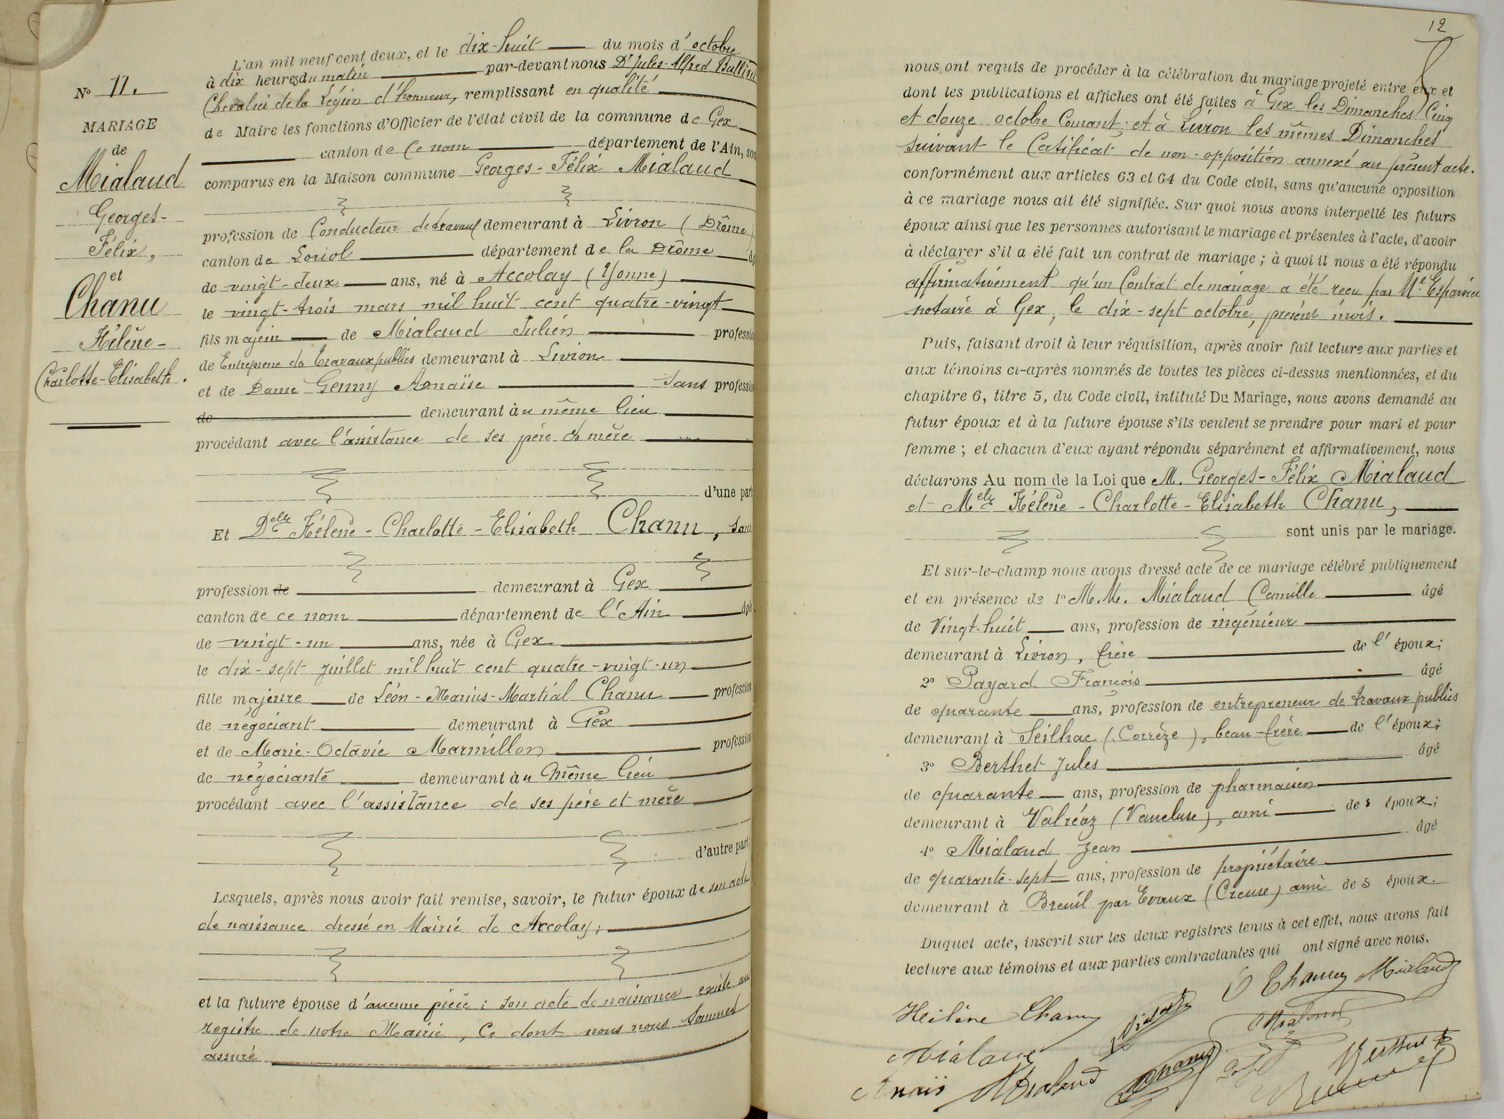 N° 11.
MARIAGE
de
Mialaud
Georges-
Félix,
et
Chanu
Hélène-
Charlotte-Elisabeth.
L'an mil neuf cent deux, et le dix-huit du mois d'octobre
à dix heures du matin par-devant nous Dr Jules-Alfred
Chevalier de la Légion d'honneur, remplissant en qualité
de Maire les fonctions d'Officier de l'état civil de la commune de Gex
canton de Ce nom département de l'Ain, son
comparus en la Maison commune Georges-Félix Mialaud
profession de Conducteur de travaux demeurant à Livron (Drôme)
canton de Loriol département de la Drôme
de vingt-deux ans, né à Accolay (Yonne)
le vingt-trois mars mil huit cent quatre-vingt
fils majeur de Mialaud Julien profession
de Entrepreneur de Travaux publics demeurant à Livron
et de Dame Genny Anaïse sans profession
de demeurant au même lieu
procédant avec l'assistance de ses père et mère
d'une part
Et Delle Hélène-Charlotte-Elisabeth Chanu, sans
profession de demeurant à Gex
canton de ce nom département de l'Ain âgé
de vingt-un ans, née à Gex
le dix-sept juillet mil huit cent quatre-vingt-un
fille majeure de Léon-Marius-Martial Chanu profession
de négociant demeurant à Gex
et de Marie-Octavie Marmillon profession
de négociante demeurant au même lieu
procédant avec l'assistance de ses père et mère
d'autre part
Lesquels, après nous avoir fait remise, savoir, le futur époux de son acte
de naissance dressé en Mairie de Accolay;
et la future épouse d'aucune pièce; son acte de naissance existe au
registre de notre Mairie, Ce dont nous nous sommes
assuré
12
nous ont requis de procéder à la célébration du mariage projeté entre eux et
dont les publications et affiches ont été faites à Gex les Dimanches Cinq
et douze octobre Courant, et à Livron les mêmes Dimanches
suivant le Certificat de non-opposition annexé au présent acte.
conformément aux articles 63 et 64 du Code civil, sans qu'aucune opposition
à ce mariage nous ait été signifiée. Sur quoi nous avons interpellé les futurs
époux ainsi que les personnes autorisant le mariage et présentes à l'acte, d'avoir
à déclarer s'il a été fait un contrat de mariage ; à quoi il nous a été répondu
affirmativement qu'un Contrat de mariage a été reçu par Me
notaire à Gex, le dix-sept octobre, présent mois.
Puis, faisant droit à leur réquisition, après avoir fait lecture aux parties et
aux témoins ci-après nommés de toutes les pièces ci-dessus mentionnées, et du
chapitre 6, titre 5, du Code civil, intitulé Du Mariage, nous avons demandé au
futur époux et à la future épouse s'ils veulent se prendre pour mari et pour
femme ; et chacun d'eux ayant répondu séparément et affirmativement, nous
déclarons Au nom de la Loi que M. Georges-Félix Mialaud
et Melle Hélène-Charlotte-Elisabeth Chanu,
sont unis par le mariage.
Et sur-le-champ nous avons dressé acte de ce mariage célébré publiquement
et en présence de 1° M.M. Mialaud Camille âgé
de Vingt-huit ans, profession de ingénieur
demeurant à Livron, frère de l'époux;
2° Payard François âgé
de quarante ans, profession de entrepreneur de travaux publics
demeurant à Seilhac (Corrèze), beau-frère de l'époux;
3° Berthet Jules âgé
de quarante ans, profession de pharmacien
demeurant à Valréaz (Vaucluse), ami des époux;
4° Mialaud Jean âgé
de quarante-sept ans, profession de propriétaire
demeurant à Breuil par Evaux (Creuse) ami des époux.
Duquel acte, inscrit sur les deux registres tenus à cet effet, nous avons fait
lecture aux témoins et aux parties contractantes qui ont signé avec nous.
Chanu Mialaud
Hélène Chanu
Mialaud
Anaïs Mialaud Chanu